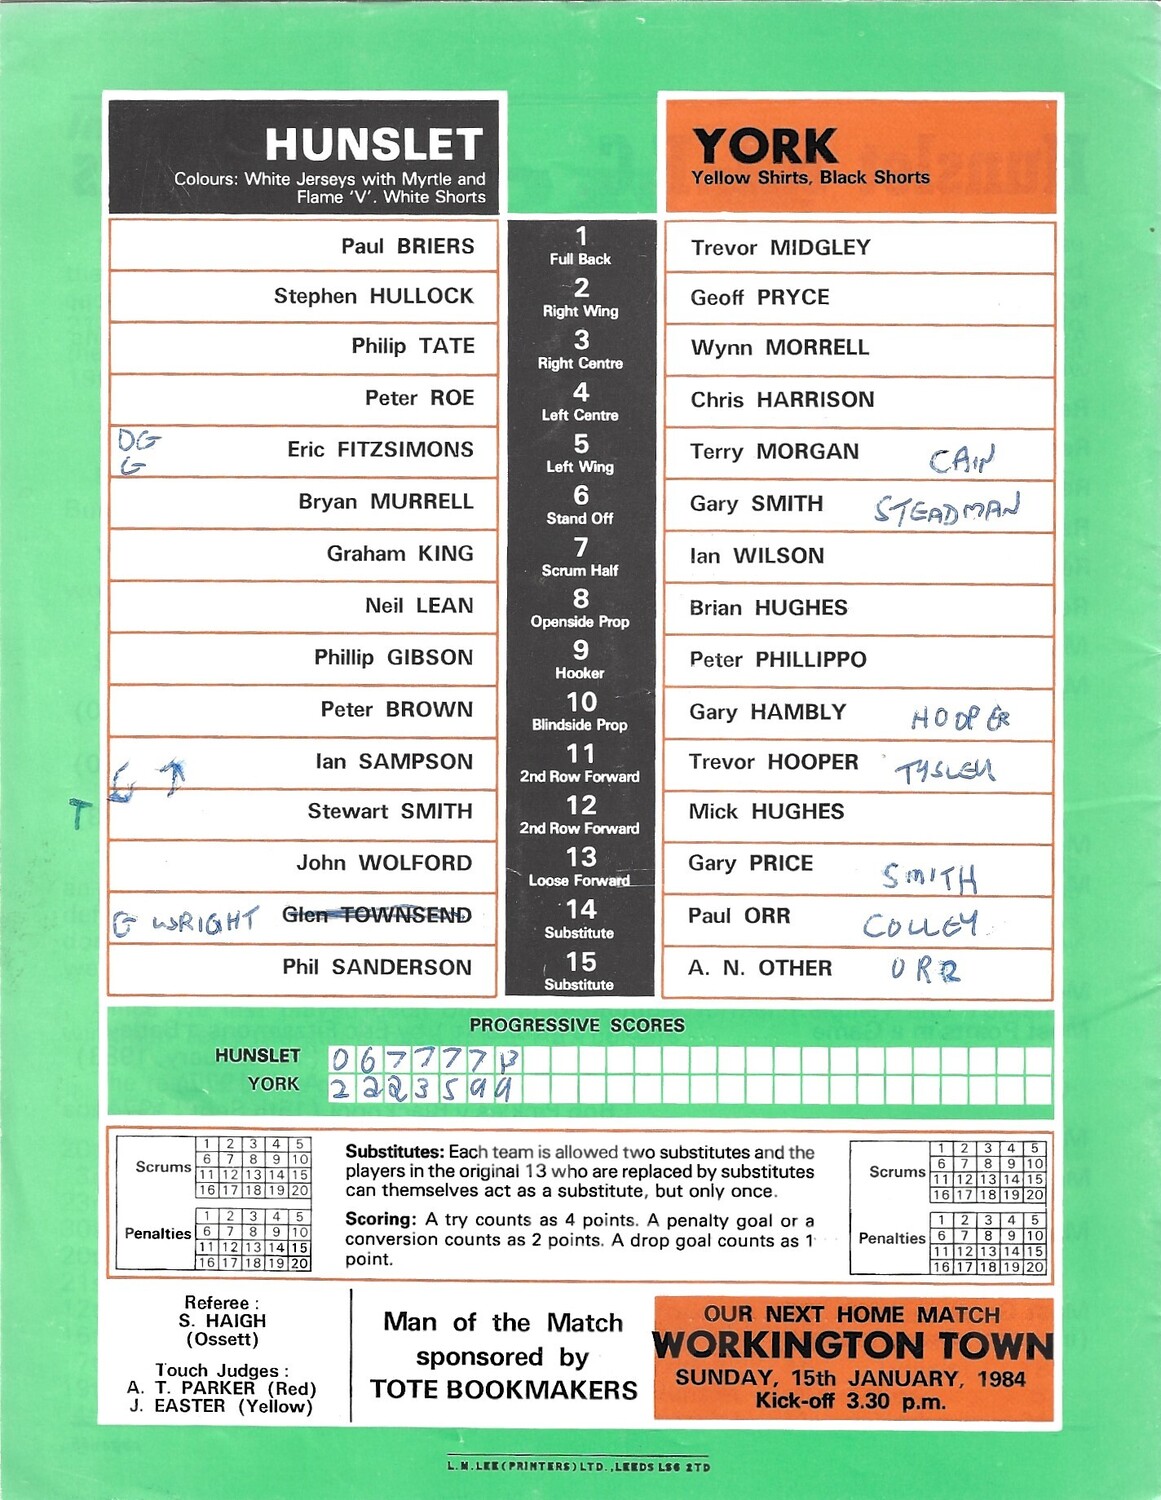 HUNSLET
Colours: White Jerseys with Myrtle and
Flame 'V'. White Shorts
YORK
Yellow Shirts, Black Shorts
Paul BRIERS 1 Full Back Trevor MIDGLEY
Stephen HULLOCK 2 Right Wing Geoff PRYCE
Philip TATE 3 Right Centre Wynn MORRELL
Peter ROE 4 Left Centre Chris HARRISON
DG G Eric FITZSIMONS 5 Left Wing Terry MORGAN CAIN
Bryan MURRELL 6 Stand Off Gary SMITH STEADMAN
Graham KING 7 Scrum Half Ian WILSON
Neil LEAN 8 Openside Prop Brian HUGHES
Phillip GIBSON 9 Hooker Peter PHILLIPPO
Peter BROWN 10 Blindside Prop Gary HAMBLY HOOPER
Ian SAMPSON 11 2nd Row Forward Trevor HOOPER
T Stewart SMITH 12 2nd Row Forward Mick HUGHES
John WOLFORD 13 Loose Forward Gary PRICE SMITH
G WRIGHT Glen TOWNSEND 14 Substitute Paul ORR COLLEY
Phil SANDERSON 15 Substitute A. N. OTHER ORR
PROGRESSIVE SCORES
HUNSLET 0 6 7 7 7 7
YORK 2 2 2 3 5 9 9
Scrums
1 2 3 4 5
6 7 8 9 10
11 12 13 14 15
16 17 18 19 20
Penalties
1 2 3 4 5
6 7 8 9 10
11 12 13 14 15
16 17 18 19 20
Substitutes: Each team is allowed two substitutes and the
players in the original 13 who are replaced by substitutes
can themselves act as a substitute, but only once.
Scoring: A try counts as 4 points. A penalty goal or a
conversion counts as 2 points. A drop goal counts as 1
point.
Scrums
1 2 3 4 5
6 7 8 9 10
11 12 13 14 15
16 17 18 19 20
Penalties
1 2 3 4 5
6 7 8 9 10
11 12 13 14 15
16 17 18 19 20
Referee :
S. HAIGH
(Ossett)
Touch Judges :
A. T. PARKER (Red)
J. EASTER (Yellow)
Man of the Match
sponsored by
TOTE BOOKMAKERS
OUR NEXT HOME MATCH
WORKINGTON TOWN
SUNDAY, 15th JANUARY, 1984
Kick-off 3.30 p.m.
L.M.LEE (PRINTERS) LTD., LEEDS LS6 2TD